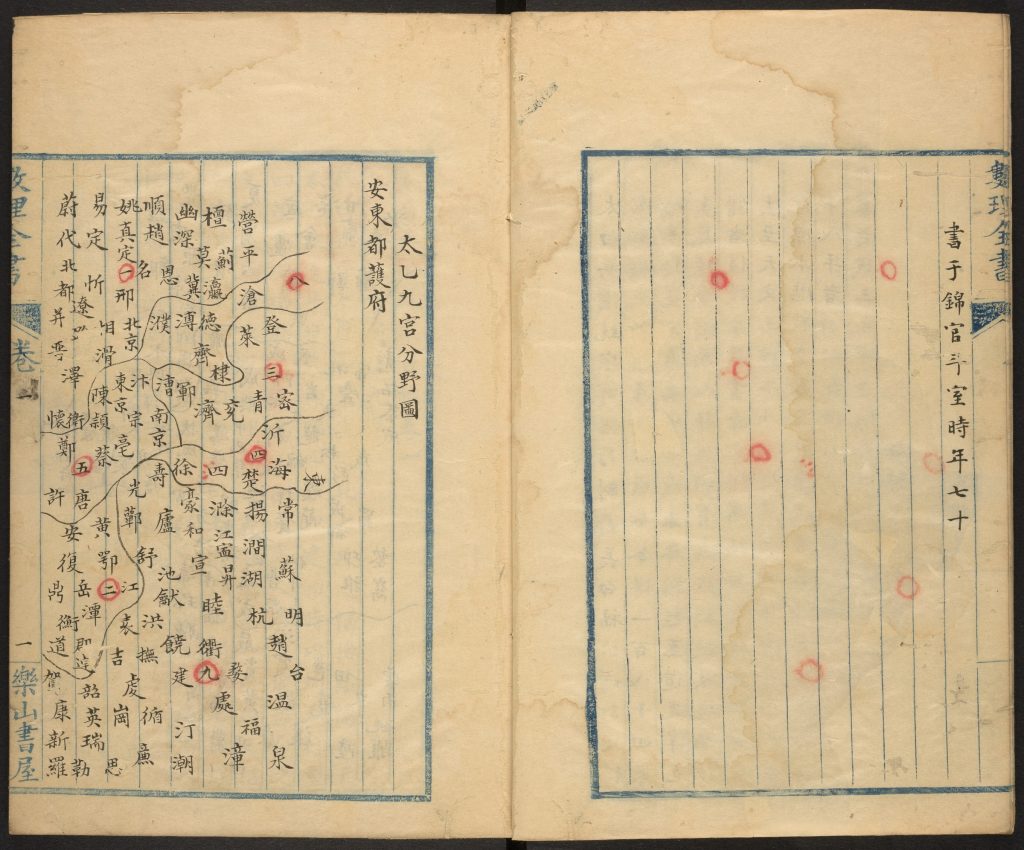 數理全書
書于錦官斗室時年七十
太乙九宮分野圖
安東都護府
八
東
明
台
登
三
密
沂
海
常
蘇
趙
温
泉
營平
滄
萊
青
四
楚
揚
澗
湖
杭
福
檀
薊
莫
瀛
德
齊
棣
兗
濟
四
滁
江寧
昇
睦
衢
九
婺
處
漳
幽深
冀
溥
鄆
徐
豪
和
宣
建
汀
潮
順趙
恩
濮
漕
南京
壽
廬
池
饒
名
北京
汴
宗
舒
洪
撫
脩
姚真定
一
邢
東京
亳
光
鄿
江
袁
吉
虔
易定
忻
滑
陳
潁
蔡
黄
鄂
二
思
蔚代北都
遼
澤
衛
懷
鄭
五
唐
許
安
復
岳
鼎
潭
衡
道
韶
英
瑞
勒
康
新
羅
數理全書
卷
一
樂山書屋